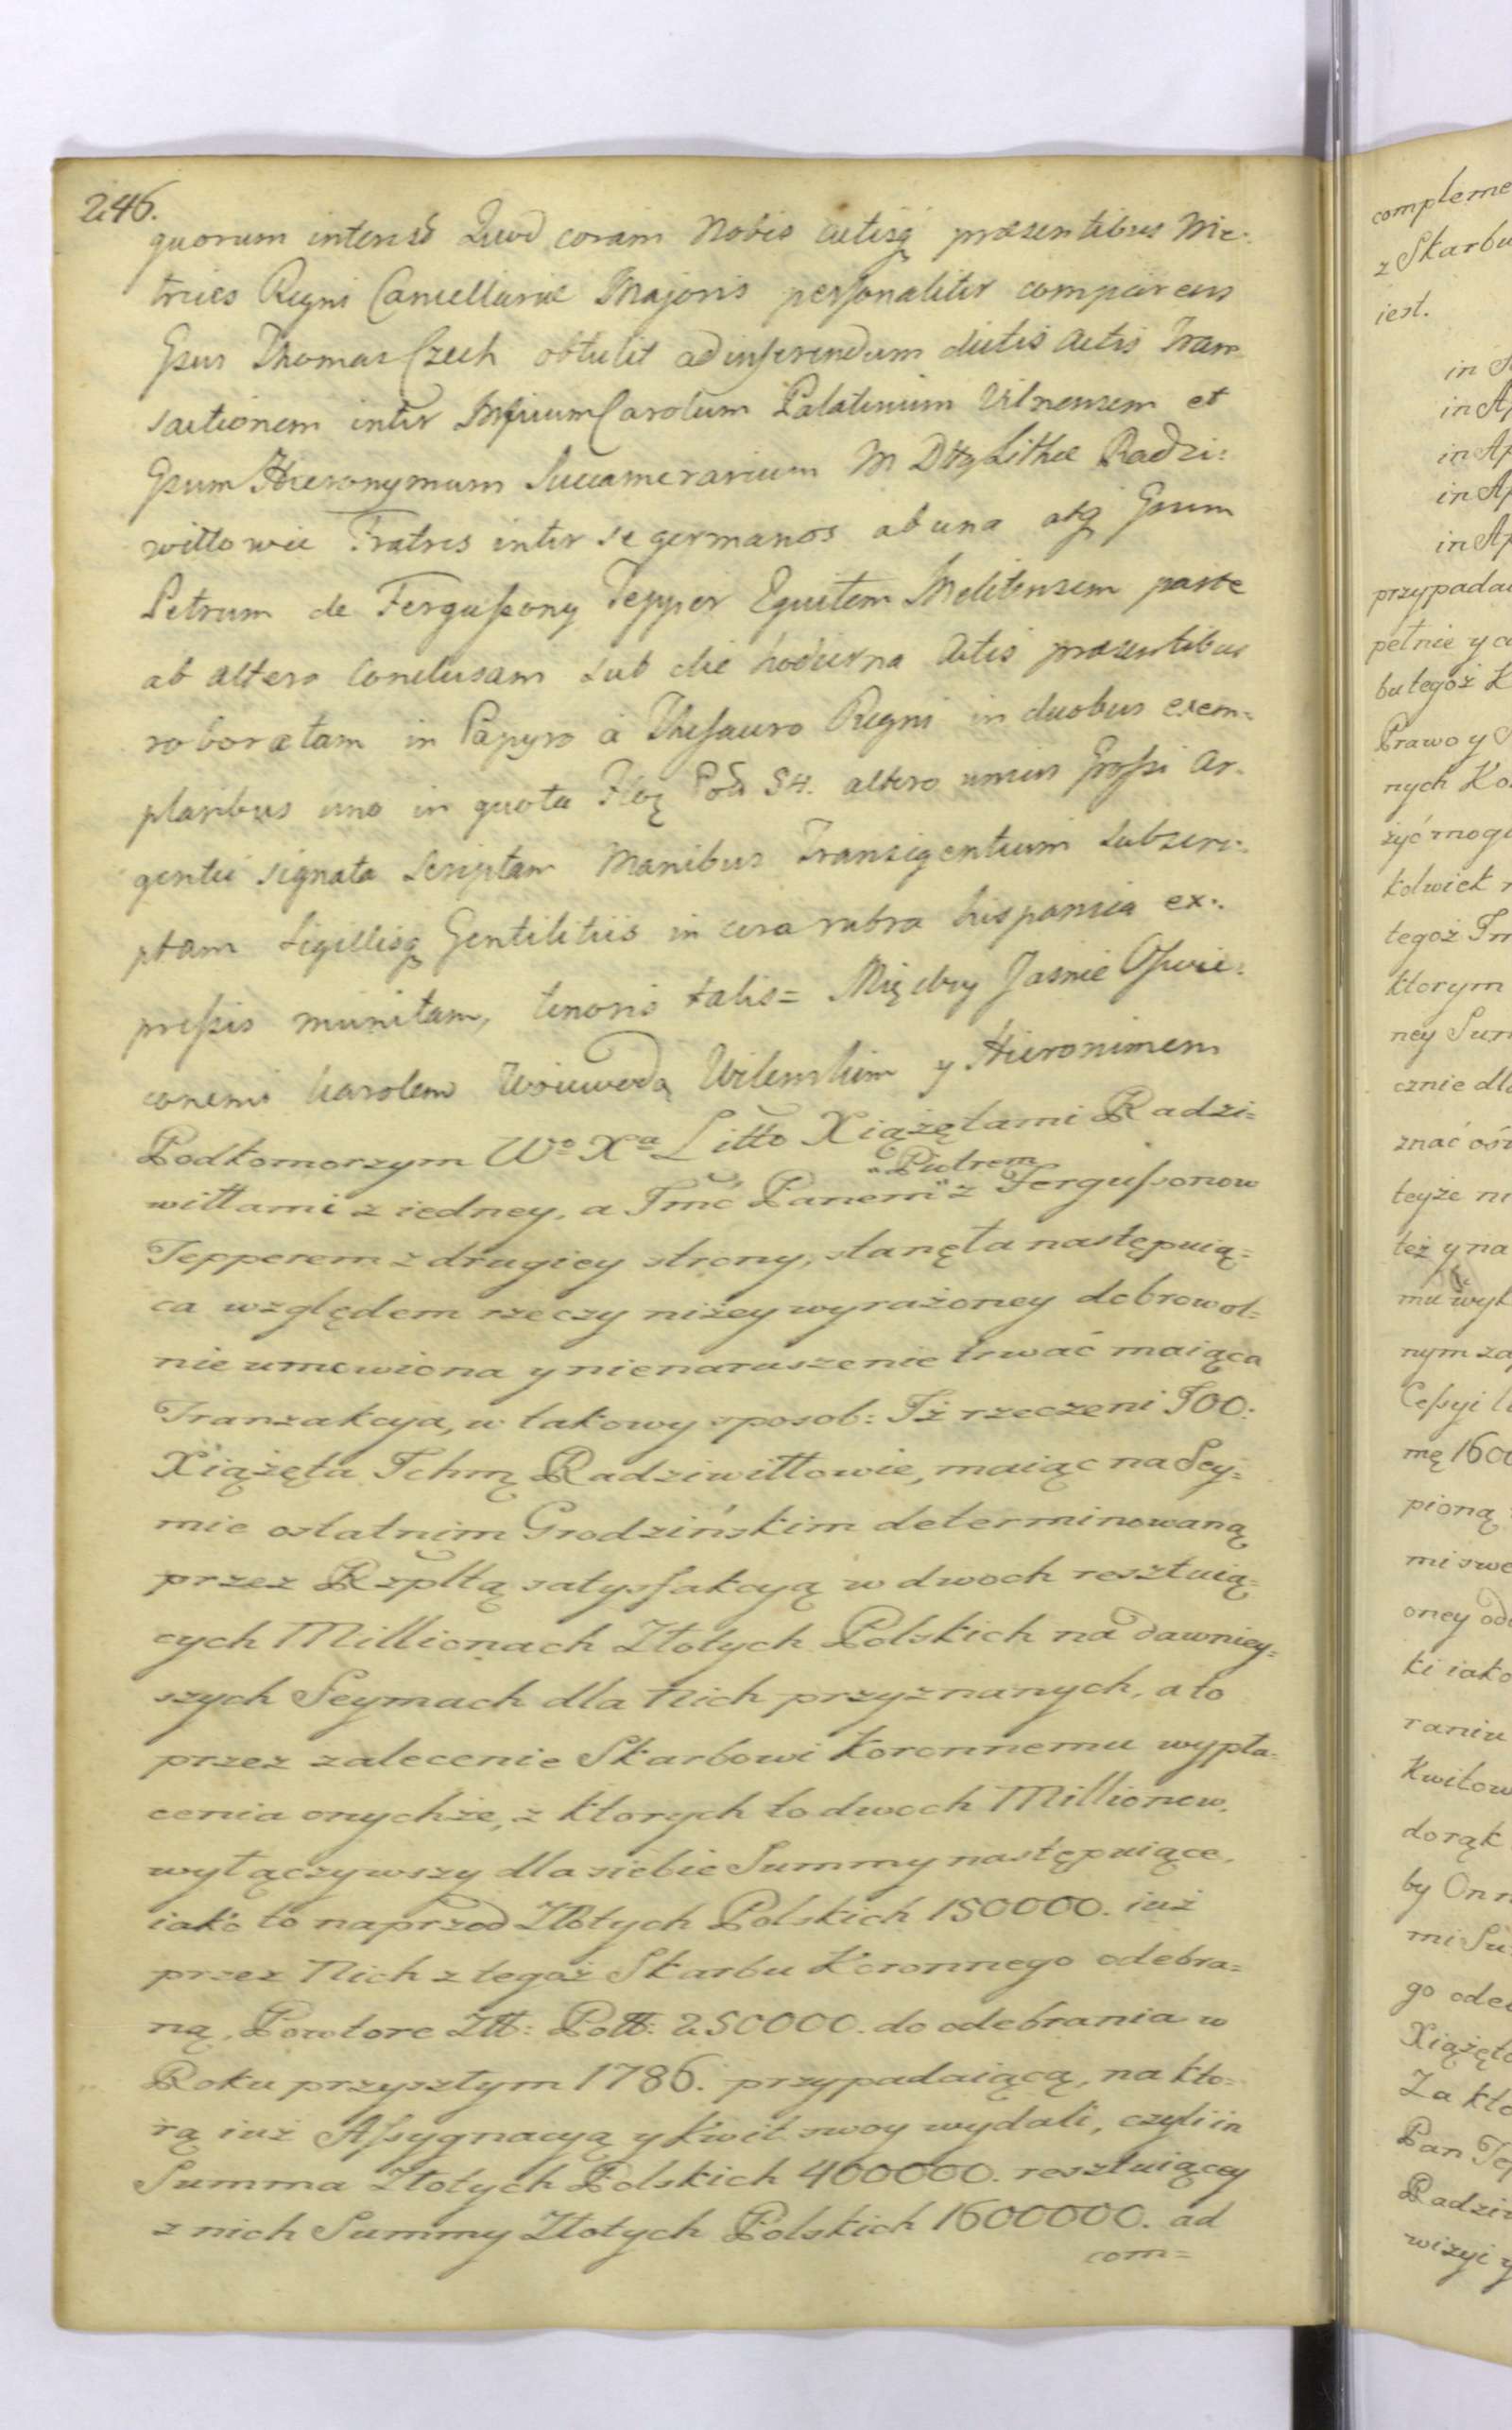 246.
quorum interest Quod coram Nobis Actisq̨ præsentibus Me:
trices Regni Cancellariæ Majoris personaliter comparens
Gsus Thomas Czech obtulit ad inserendum dictis Actis Tran
sactionem inter Carolum Palatinum Vilnensem et
Gsum Hieronymum Succamerarium M D Lithæ Radzi:
wiłłowie Fratres inter se germanos ab una atq̨ Gsum
Petrum de Fergussony Tepper Equitem Melitensem parte
ab altera Conclusam sub die hodierna Actis præsentibus
roboratam in Papyro à Thesauro Regni in duobus exem-
plaribus uno in quota Pol 54. altero unius Grossi Ar-
gentei signata Scriptam Manibus Transigentium Subscri-
ptam Sigillisq̨ Gentilitiis in cera rubra hispanica ex:
pressis munitam, tenoris talis= Między Jasnie Oswie:
conemi Karolem Woiewodą Wilenskim y Hieronimem
Podkomorzym Wº Xª Litto Xiążętami Radzi=
wiłłami z iedney, a Jmć Panem "Piotrem" z Fergussonow
Tepperem z drugiey strony, stanęła następuią=
ca względem rzeczy niżey wyrażoney dobrowol=
nie umowiona y nienaruszenie trwać maiąca
Tranzakcya, w takowy sposob: Iż rzeczeni JOO:
Xiążęta Ichmę Radziwiłłowie, maiąc na Sey=
mie ostatnim Grodzińskim determinowaną
przez Rzpltą satysfakcyą w dwoch resztuią=
cych Millionach Złotych Polskich na dawniey=
szych Seymach dla Nich przyznanych, a to
przez zalecenie Skarbowi Koronnemu wypła=
cenia onychże, z ktorych to dwoch Millionow,
wyłączywszy dla siebie Summy następuiące,
iako to naprzod Złotych Polskich 150000. iuż
przez Nich z tegoż Skarbu Koronnego odebra=
ną, Powtore Złł: Poll: 250000. do odebrania w
Roku przyszłym 1786. przypadaiącą, na kto=
rą iuż Assygnacyą y Kwit swoy wydali, czyli in
Summa Złotych Polskich 400000. resztuiącey
z nich Summy Złotych Polskich 1600000. ad
com=
compleme
z Skarbu
iest.
in
in Ap
in Ap
in Ap
in Ap
przypada
pełnie y
bu tegoż K
Prawo y
nych Ko
żyć mog
kolwiek
tegoż Im
ktorym
ney Sum
cznie dl
znać
teyże
też y na
mu wyk
nym za
Cessyi
mę 160
pioną
mi swe
oney
ki iako
raniu
Kwitow
do rąk
by On
mi Su
go ode
Xiążęt
Za kto
Pan Te
Radzi
wizyi y